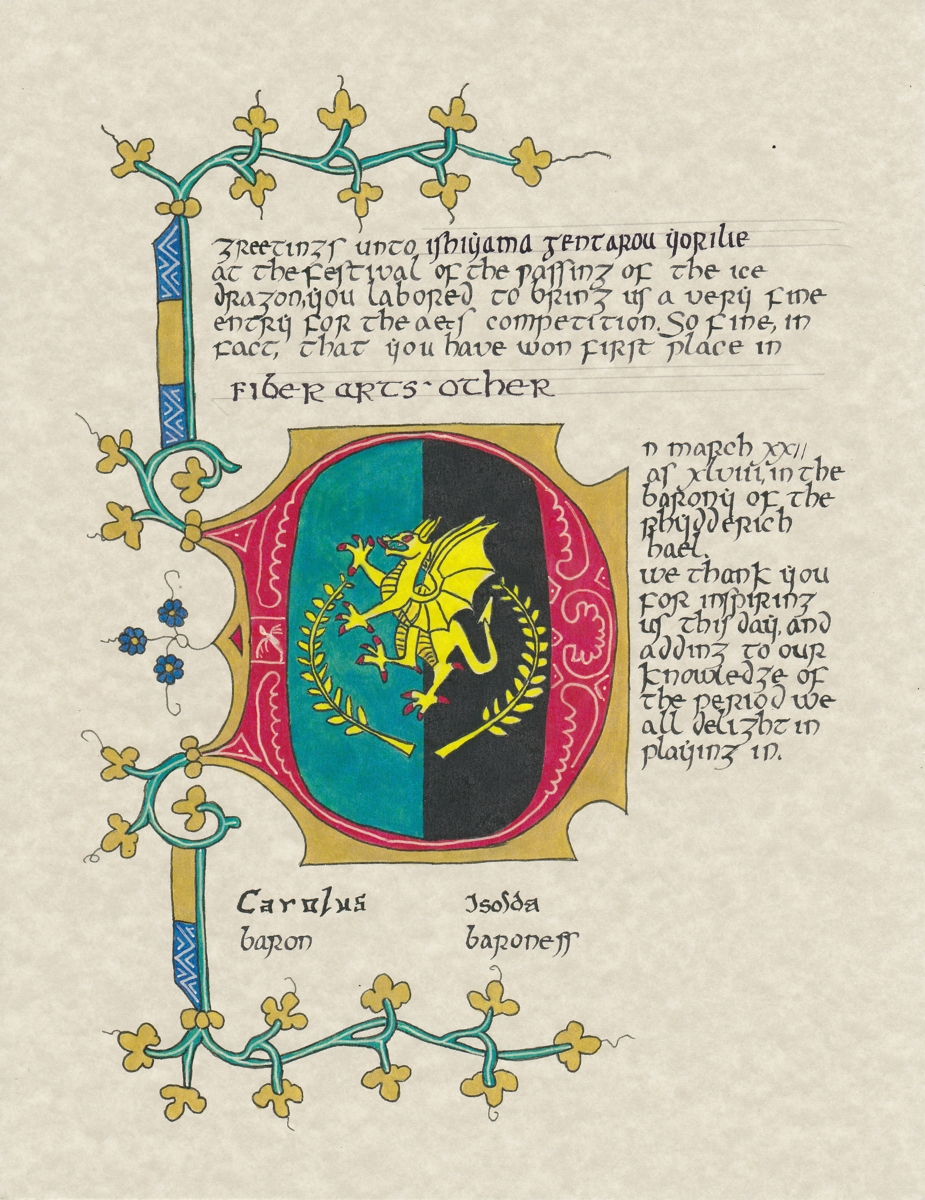 Greetings unto Ishiyama Gentarou Yorilie
at the festival of the passing of the ice
dragon, you labored to bring us a very fine
entry for the a&s competition. So fine, in
fact, that you have won first place in
Fiber arts - other
On march XXII
as xlviii, in the
barony of the
rhydderich
hael.
we thank you
for inspiring
us this day, and
adding to our
knowledge of
the period we
all delight in
playing in.
Carolus Isolda
baron baroness